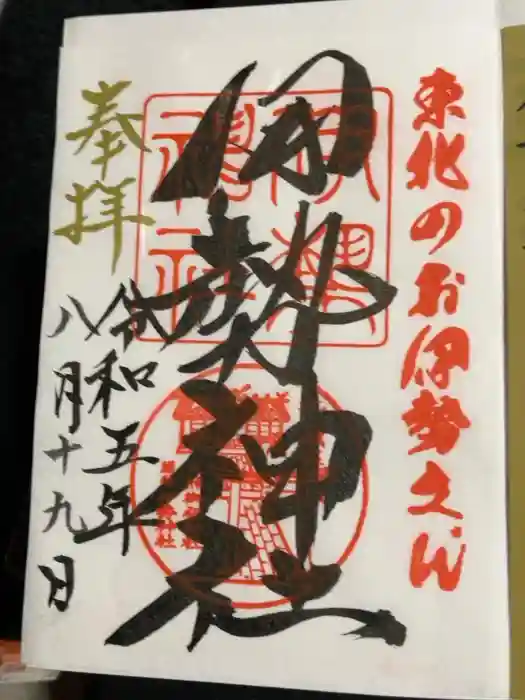 東北のお伊勢さん
伊勢神社
奉拝
令和五年
八月十九日